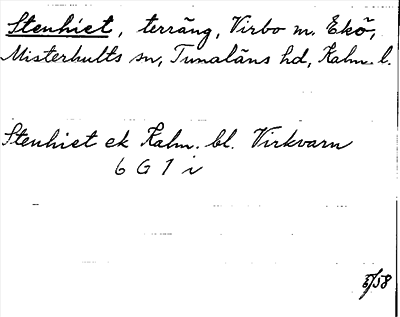 Stenhiet, terräng, Virbo m. Ekö,
Misterhults sn, Tunaläns hd, Kalm. l.
Stenhiet ek Kalm. bl. Virkvarn
6 G 7 i
5/58